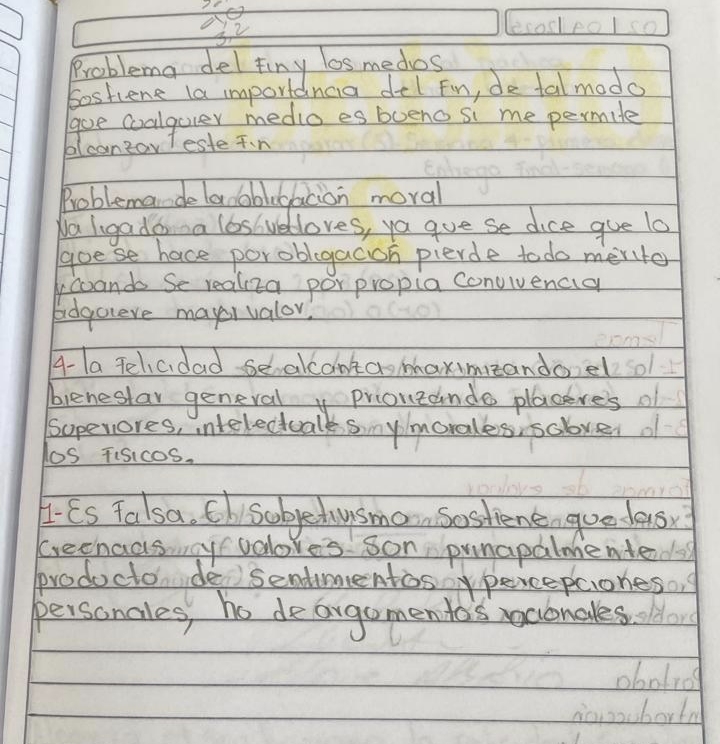 3,2
Problema del Fin y los medios
Sostiene la importancia del Fin, de tal modo
que cualquier medio es bueno si me permite
alcanzar este Fin
Problema de la oblicación moral
Va ligado a los valores, ya que se dice que lo
que se hace por obligación pierde todo mérito
y cuando se realiza por propia convivencia
adquiere mayor valor.
4- la Felicidad se alcanza maximizando el
bienestar general y priorizando placeres
superiores, intelectuales y morales sobre
los Fisicos.
1- Es Falsa. El subjetivismo sostiene que las
creencias y valores son principalmente
producto de sentimientos y percepciones
personales, no de argumentos racionales.